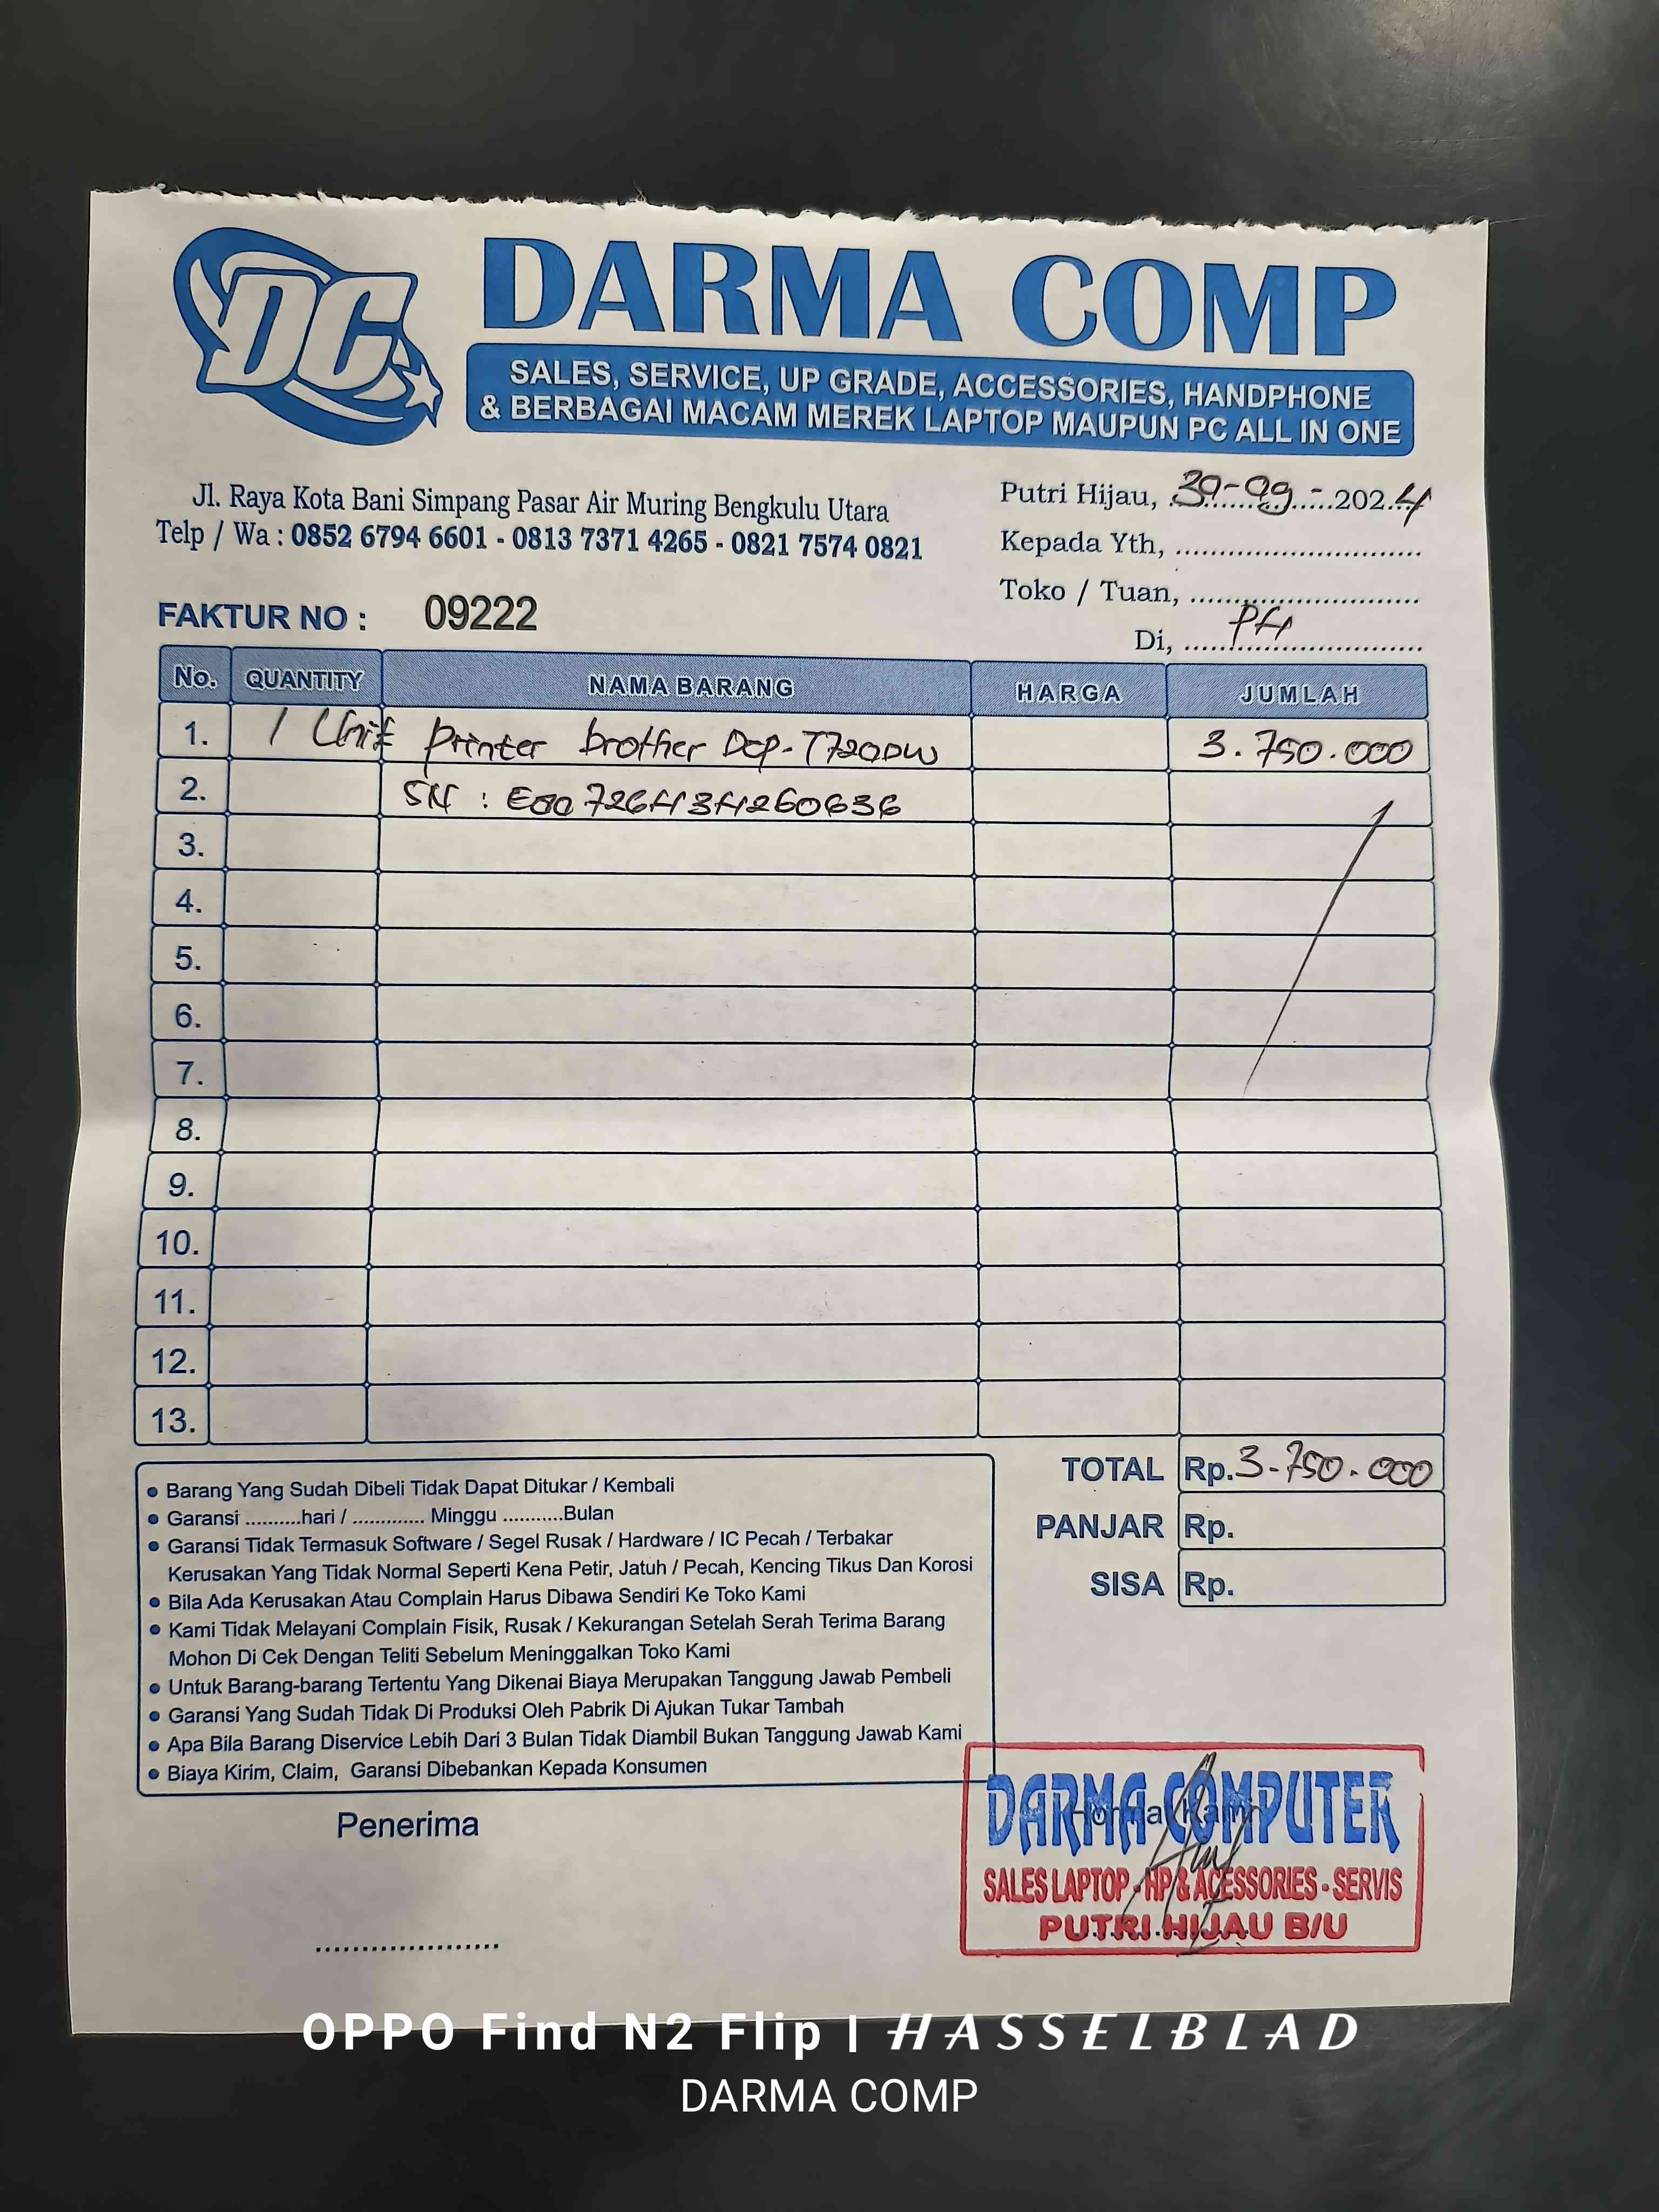 DC
DARMA COMP
SALES, SERVICE, UP GRADE, ACCESSORIES, HANDPHONE
& BERBAGAI MACAM MEREK LAPTOP MAUPUN PC ALL IN ONE
Jl. Raya Kota Bani Simpang Pasar Air Muring Bengkulu Utara
Telp / Wa : 0852 6794 6601 - 0813 7371 4265 - 0821 7574 0821
Putri Hijau, 30-09-2024
Kepada Yth, ..............................
Toko / Tuan, ..............................
Di, PH
FAKTUR NO : 09222
No. QUANTITY NAMA BARANG HARGA JUMLAH
1. 1 Unit Printer brother Dcp-T720DW 3.750.000
2. SN :
3.
4.
5.
6.
7.
8.
9.
10.
11.
12.
13.
TOTAL Rp. 3.750.000
PANJAR Rp.
SISA Rp.
• Barang Yang Sudah Dibeli Tidak Dapat Ditukar / Kembali
• Garansi ..........hari / ............. Minggu ...........Bulan
• Garansi Tidak Termasuk Software / Segel Rusak / Hardware / IC Pecah / Terbakar
Kerusakan Yang Tidak Normal Seperti Kena Petir, Jatuh / Pecah, Kencing Tikus Dan Korosi
• Bila Ada Kerusakan Atau Complain Harus Dibawa Sendiri Ke Toko Kami
• Kami Tidak Melayani Complain Fisik, Rusak / Kekurangan Setelah Serah Terima Barang
Mohon Di Cek Dengan Teliti Sebelum Meninggalkan Toko Kami
• Untuk Barang-barang Tertentu Yang Dikenai Biaya Merupakan Tanggung Jawab Pembeli
• Garansi Yang Sudah Tidak Di Produksi Oleh Pabrik Di Ajukan Tukar Tambah
• Apa Bila Barang Diservice Lebih Dari 3 Bulan Tidak Diambil Bukan Tanggung Jawab Kami
• Biaya Kirim, Claim, Garansi Dibebankan Kepada Konsumen
Penerima
.....................
Hormat Kami
DARMA COMPUTER
SALES LAPTOP - HP & ACESSORIES - SERVIS
PUTRI HIJAU B/U
OPPO Find N2 Flip | HASSELBLAD
DARMA COMP